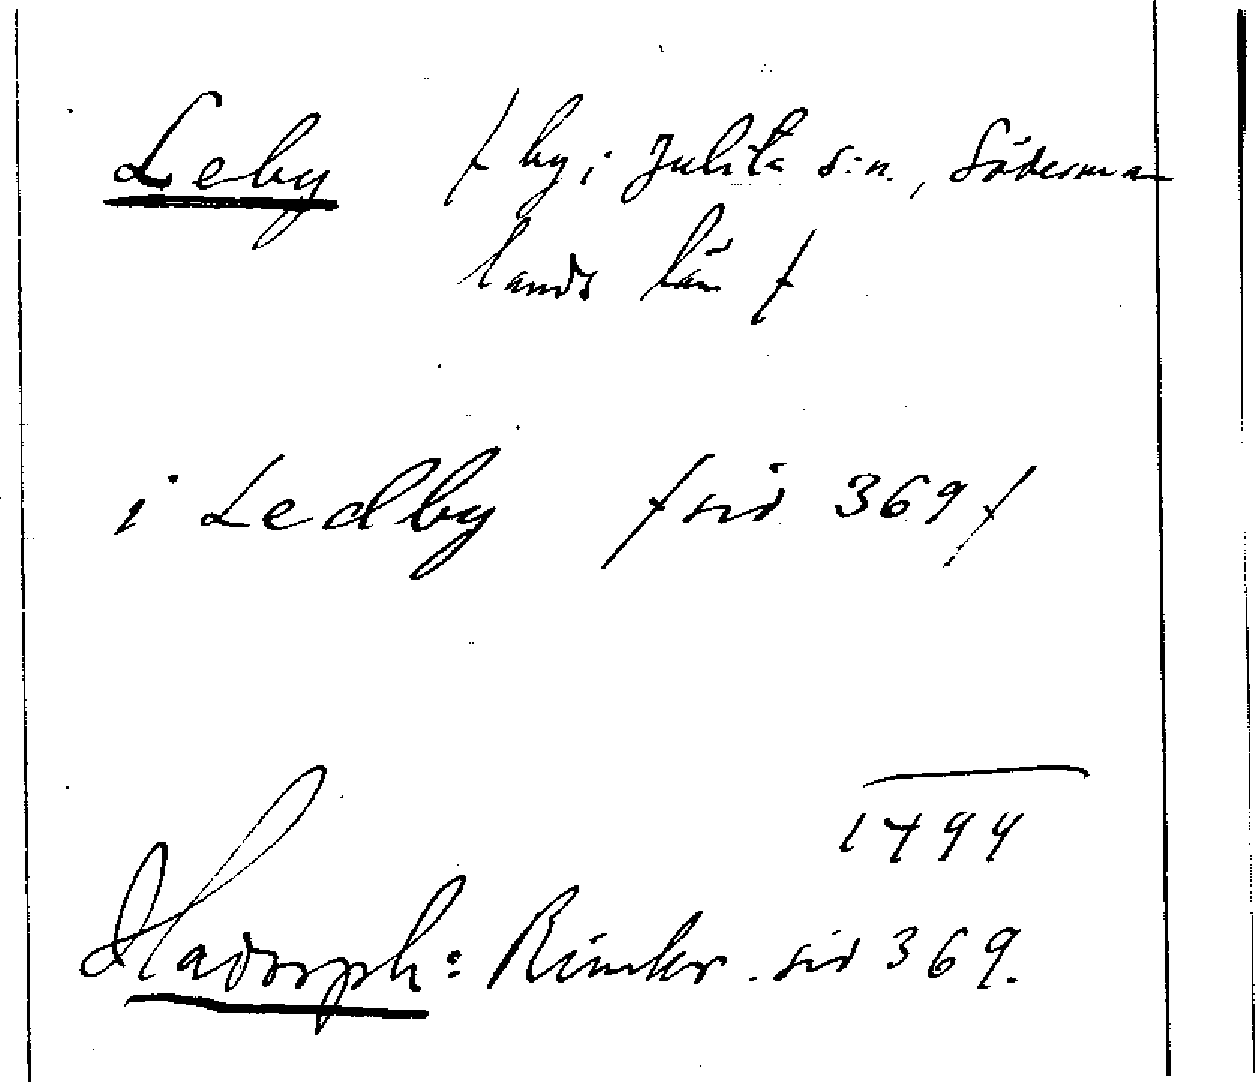 Leby / by i Julita s:n, Söderman
lands län /
i Ledby / sid 369 /
1494
Hadorph: Rimkr. sid 369.